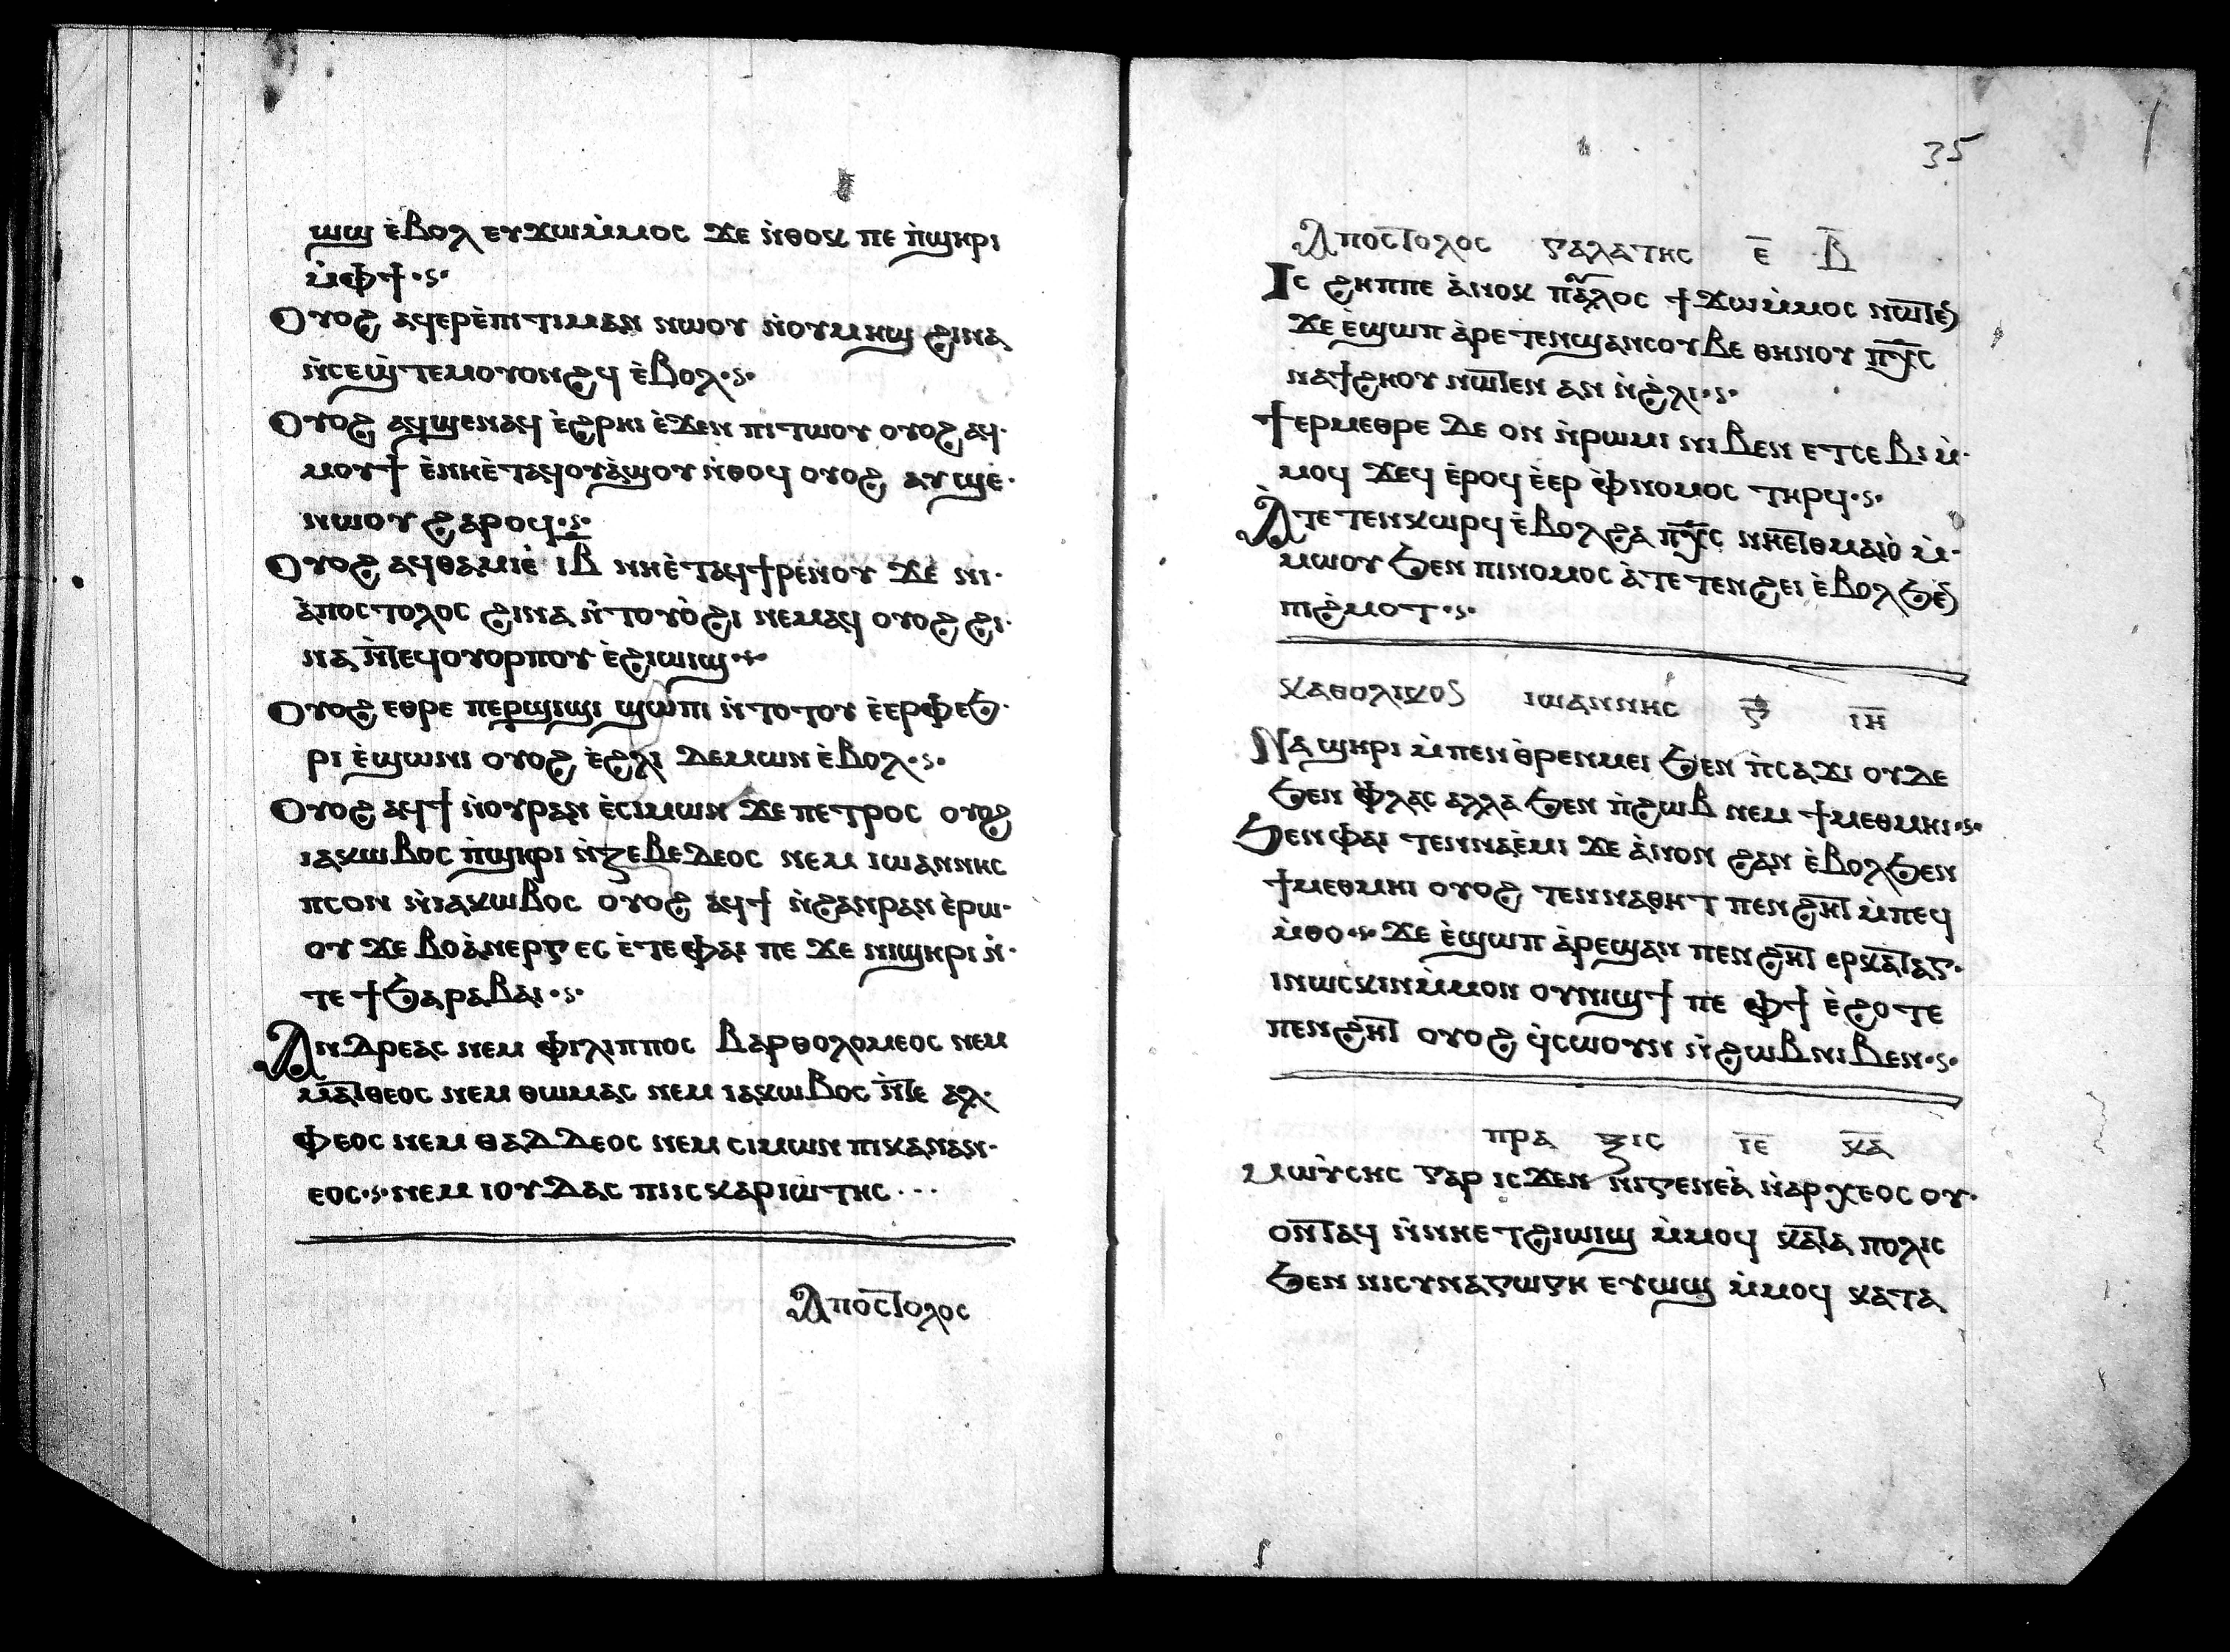 ⲱϣ ⲉ̀ⲃⲟⲗ ⲉⲩϫⲱⲙ̀ⲙⲟⲥ ϫⲉ ⲛ̀ⲑⲟⲕ ⲡⲉ ⲡ̀ϣⲏⲣⲓ
ⲙ̀ⲫϯ·ⲋ·
Ⲟⲩⲟϩ ⲁϥⲉⲣⲉ̀ⲡⲓⲧⲓⲙⲁⲛ ⲛⲱⲟⲩ ⲛ̀ⲟⲩⲙⲏϣ ϩⲓⲛⲁ
ⲛ̀ⲥⲉϣ̀ⲧⲉⲙⲟⲩⲟⲛϩϥ ⲉ̀ⲃⲟⲗ·ⲋ·
Ⲟⲩⲟϩ ⲁϥϣⲉⲛⲁϥ ⲉ̀ϩⲣⲏⲓ ⲉ̀ϫⲉⲛ ⲡⲓⲧⲱⲟⲩ ⲟⲩⲟϩ ⲁϥ·
ⲙⲟⲩϯ ⲉ̀ⲛⲏⲉ̀ⲧⲁϥⲟⲩⲁ̀ϣⲟⲩ ⲛ̀ⲑⲟϥ ⲟⲩⲟϩ ⲁⲩϣⲉ̀·
ⲛⲱⲟⲩ ϩⲁⲣⲟϥ·ⲋ·
Ⲟⲩⲟϩ ⲁϥⲑⲁⲙⲓⲉ̀ ⲓⲃ ⲛⲏⲉ̀ⲧⲁϥϯⲣⲉⲛⲟⲩ ϫⲉ ⲛⲓ·
ⲁ̀ⲡⲟⲥⲧⲟⲗⲟⲥ ϩⲓⲛⲁ ⲛ̀ⲧⲟⲩⲟ̀ϩⲓ ⲛⲉⲙⲁϥ ⲟⲩⲟϩ ϩⲓ·
ⲛⲁ ⲛ̀ⲧⲉϥⲟⲩⲟⲣⲡⲟⲩ ⲉ̀ϩⲓⲱⲓϣ·ⲋ·
Ⲟⲩⲟϩ ⲉⲑⲣⲉ ⲡⲉⲣϣⲓϣⲓ ϣⲱⲡⲓ ⲛ̀ⲧⲟⲧⲟⲩ ⲉ̀ⲉⲣⲫⲉϧ·
ⲣⲓ ⲉ̀ϣⲱⲛⲓ ⲟⲩⲟϩ ⲉ̀ϩⲗⲓ ⲇⲉⲙⲱⲛ ⲉ̀ⲃⲟⲗ·ⲋ·
Ⲟⲩⲟϩ ⲁϥϯ ⲛ̀ⲟⲩⲣⲁⲛ ⲉ̀ⲥⲓⲙⲱⲛ ϫⲉ ⲡⲉⲧⲣⲟⲥ ⲟⲩⲟϩ
ⲓⲁⲕⲱⲃⲟⲥ ⲡ̀ϣⲏⲣⲓ ⲛ̀ⲍⲉⲃⲉⲇⲉⲟⲥ ⲛⲉⲙ ⲓⲱⲁⲛⲛⲏⲥ
ⲡⲥⲟⲛ ⲛ̀ⲓⲁⲕⲱⲃⲟⲥ ⲟⲩⲟϩ ⲁϥϯ ⲛ̀ϩⲁⲛⲣⲁⲛ ⲉ̀ⲣⲱ·
ⲟⲩ ϫⲉ ⲃⲟⲁ̀ⲛⲉⲣⲅⲉⲥ ⲉ̀ⲧⲉ ⲫⲁⲓ ⲡⲉ ϫⲉ ⲛⲓϣⲏⲣⲓ ⲛ̀·
ⲧⲉ ϯϧⲁⲣⲁⲃⲁⲓ·ⲋ·
Ⲁⲛⲇⲣⲉⲁⲥ ⲛⲉⲙ ⲫⲓⲗⲓⲡⲡⲟⲥ ⲃⲁⲣⲑⲟⲗⲟⲙⲉⲟⲥ ⲛⲉⲙ
ⲙⲁⲧⲑⲉⲟⲥ ⲛⲉⲙ ⲑⲱⲙⲁⲥ ⲛⲉⲙ ⲓⲁⲕⲱⲃⲟⲥ ⲛ̀ⲧⲉ ⲁⲗ·
ⲫⲉⲟⲥ ⲛⲉⲙ ⲑⲁⲇⲇⲉⲟⲥ ⲛⲉⲙ ⲥⲓⲙⲱⲛ ⲡⲓⲕⲁⲛⲁⲛ·
ⲉⲟⲥ·ⲋ·ⲛⲉⲙ ⲓⲟⲩⲇⲁⲥ ⲡⲓⲓⲥⲕⲁⲣⲓⲱⲧⲏⲥ···
Ⲁⲡⲟⲥⲧⲟⲗⲟⲥ
35
Ⲁⲡⲟⲥⲧⲟⲗⲟⲥ ⲅⲁⲗⲁⲧⲏⲥ ⲉ̅ ⲃ̅
Ⲓⲥ ϩⲏⲡⲡⲉ ⲁ̀ⲛⲟⲕ ⲡⲁⲗⲟⲥ ϯϫⲱⲙ̀ⲙⲟⲥ ⲛⲱⲧⲉⲛ
ϫⲉ ⲉ̀ϣⲱⲡ ⲁ̀ⲣⲉⲧⲉⲛϣⲁⲛⲥⲟⲩⲃⲉ ⲑⲏⲛⲟⲩ ⲡⲭ̅ⲥ
ⲛⲁϯϩⲏⲟⲩ ⲛⲱⲧⲉⲛ ⲁⲛ ⲛ̀ϩ̀ⲗⲓ·ⲋ·
ϯⲉⲣⲙⲉⲑⲣⲉ ⲇⲉ ⲟⲛ ⲛ̀ⲣⲱⲙⲓ ⲛⲓⲃⲉⲛ ⲉⲧⲥⲉⲃⲓ ⲙ̀·
ⲙⲟϥ ϫⲉϥ ⲉ̀ⲣⲟϥ ⲉ̀ⲉⲣ ⲫ̀ⲛⲟⲙⲟⲥ ⲧⲏⲣϥ·ⲋ·
Ⲁ̀ⲧⲉⲧⲉⲛⲕⲱⲣϥ ⲉ̀ⲃⲟⲗϩⲁ ⲡⲭ̅ⲥ ⲛⲏⲉⲧⲑⲙⲁⲓⲟ̀ ⲙ̀·
ⲙⲱⲟⲩ ϧⲉⲛ ⲡⲓⲛⲟⲙⲟⲥ ⲁ̀ⲧⲉⲧⲉⲛϩⲉⲓ ⲉ̀ⲃⲟⲗϧⲉⲛ
ⲡⲓϩ̀ⲙⲟⲧ·ⲋ·
ⲕⲁⲑⲟⲗⲓⲕⲟⲥ ⲓⲱⲁⲛⲛⲏⲥ ⲅ̅ ⲓⲏ̅
Ⲛⲁϣⲏⲣⲓ ⲙ̀ⲡⲉⲛⲑ̀ⲣⲉⲛⲙⲉⲓ ϧⲉⲛ ⲡ̀ⲥⲁϫⲓ ⲟⲩⲇⲉ
ϧⲉⲛ ⲫ̀ⲗⲁⲥ ⲁⲗⲗⲁ ϧⲉⲛ ⲡ̀ϩⲱⲃ ⲛⲉⲙ ϯⲙⲉⲑⲙⲏⲓ·ⲋ·
Ϧⲉⲛ ⲫⲁⲓ ⲧⲉⲛⲛⲁⲉ̀ⲙⲓ ϫⲉ ⲁ̀ⲛⲟⲛ ϩⲁⲛ ⲉ̀ⲃⲟⲗϧⲉⲛ
ϯⲙⲉⲑⲙⲏⲓ ⲟⲩⲟϩ ⲧⲉⲛⲛⲁⲑⲏⲧ ⲡⲉⲛϩⲏⲧ ⲙ̀ⲡⲉϥ
ⲙ̀ⲑⲟ·ⲋ· ϫⲉ ⲉ̀ϣⲱⲡ ⲁ̀ⲣⲉϣⲁⲛ ⲡⲉⲛϩⲏⲧ ⲉⲣⲕⲁⲧⲁⲅ·
ⲓⲛⲱⲥⲕⲓⲛⲙ̀ⲙⲟⲛ ⲟⲩⲛⲓϣϯ ⲡⲉ ⲫϯ ⲉ̀ϩⲟⲧⲉ
ⲡⲉⲛϩⲏⲧ ⲟⲩⲟϩ ϥ̀ⲥⲱⲟⲩⲛ ⲛ̀ϩⲱⲃ ⲛⲓⲃⲉⲛ·ⲋ·
ⲡⲣⲁ ⲝⲓⲥ ⲓⲉ̅ ⲕⲁ̅
ⲙⲱⲩ̀ⲥⲏⲥ ⲅⲁⲣ ⲓⲥϫⲉⲛ ⲛⲓⲅⲉⲛⲉⲁ̀ ⲛ̀ⲁⲣⲭⲉⲟⲥ ⲟⲩ·
ⲟⲛⲧⲁϥ ⲛ̀ⲛⲏⲉⲧϩⲓⲱⲓϣ ⲙ̀ⲙⲟϥ ⲕⲁⲧⲁ ⲡⲟⲗⲓⲥ
ϧⲉⲛ ⲛⲓⲥⲩⲛⲁⲅⲱⲅⲏ ⲉⲩⲱϣ ⲙ̀ⲙⲟϥ ⲕⲁⲧⲁ